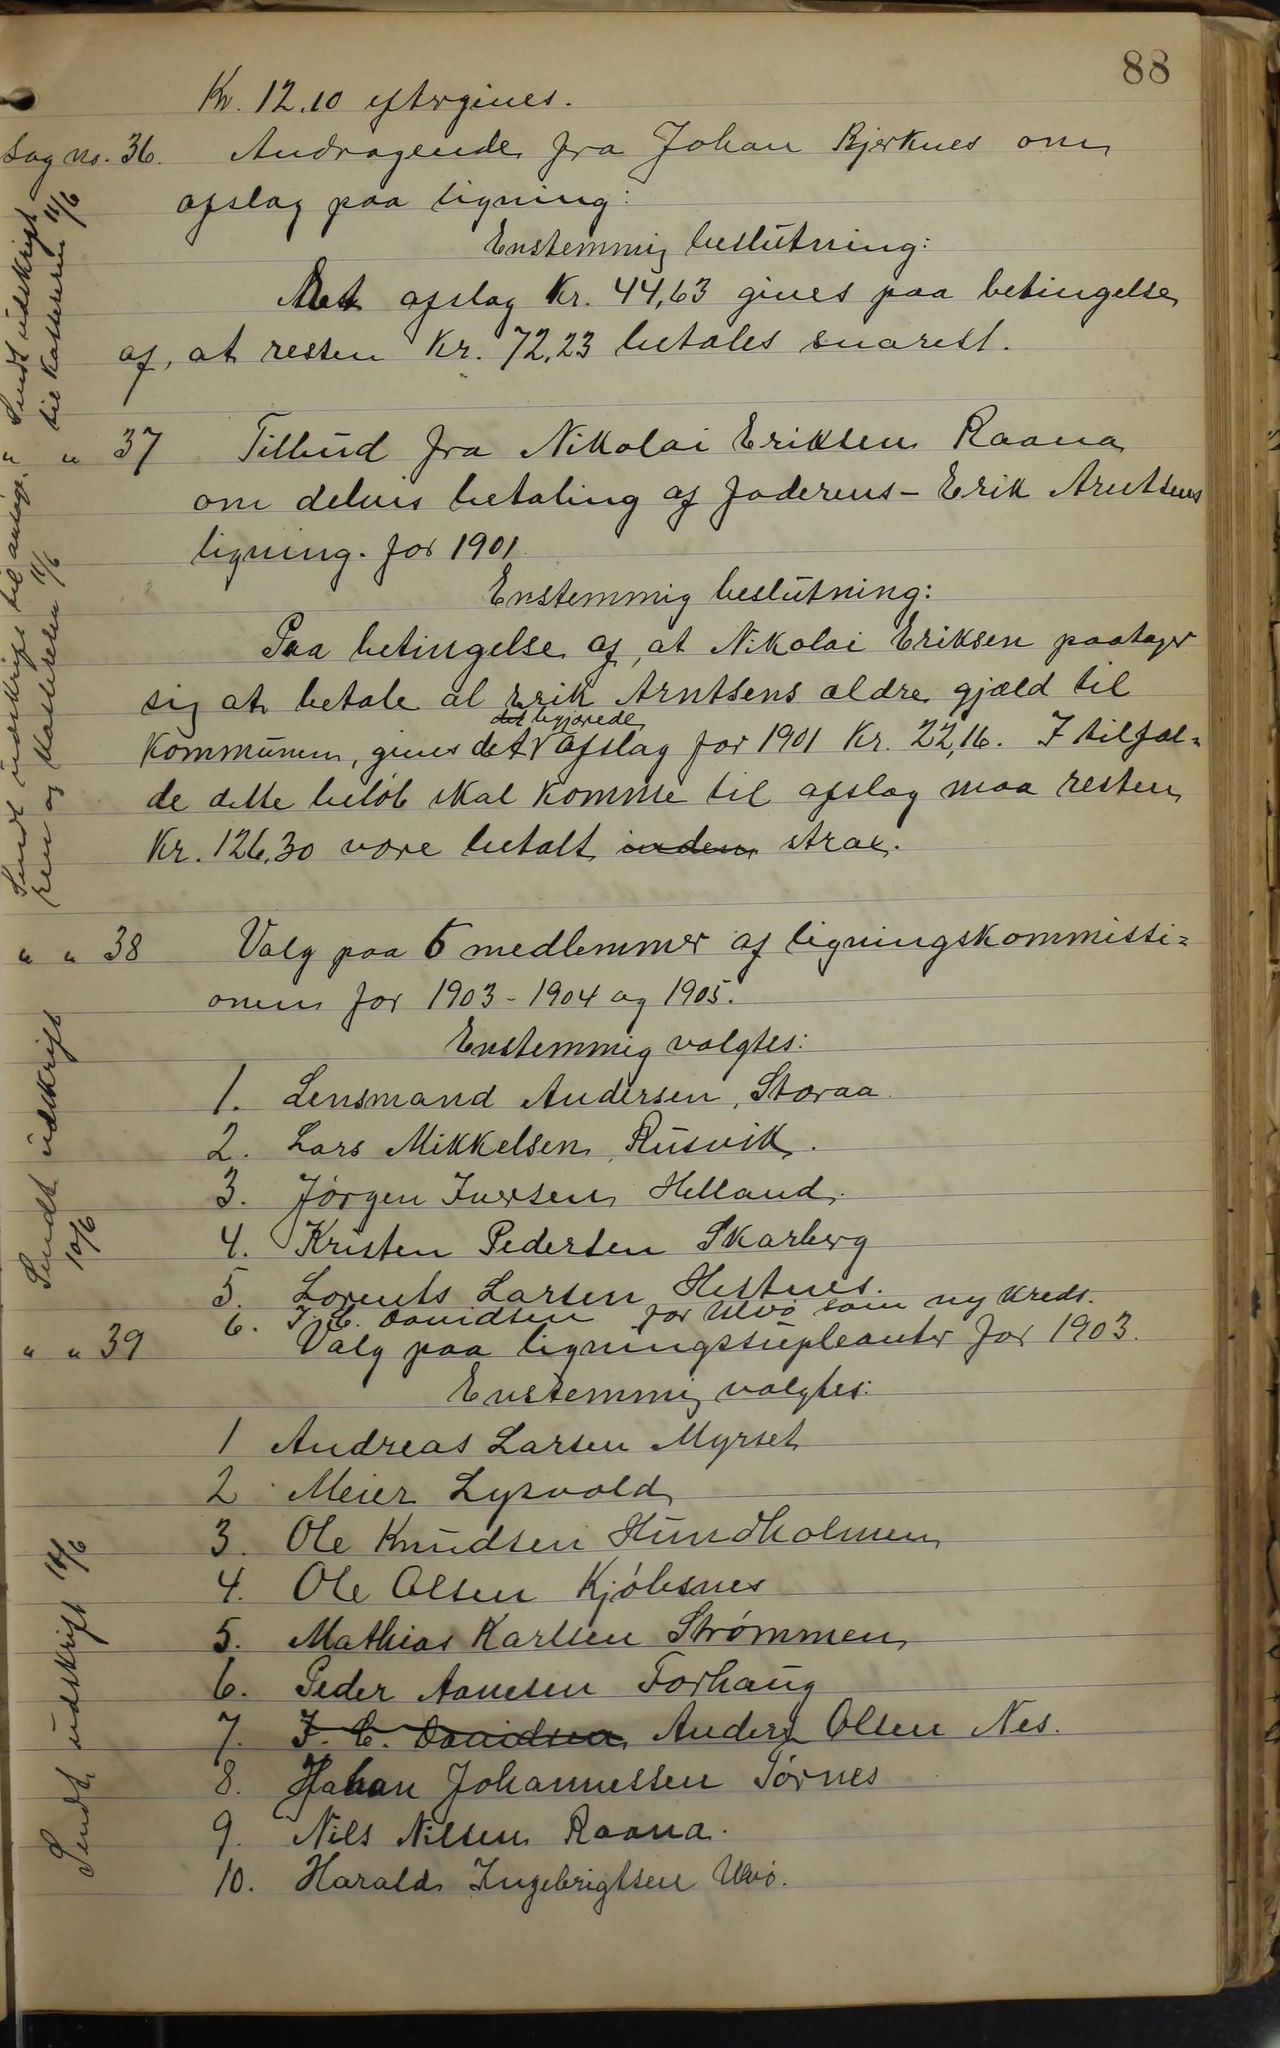 88
Kr. 12.10 eftergives.
Sag no. 36. Andragende fra Johan Bjerknes om
afslag paa ligning:
Enstemmig beslutning:
Det afslag Kr. 44,63 gives paa betingelse
af, at resten Kr. 72,23 betales snarest.
Sendt udskrift
til kassereren 11/6
" " 37 Tilbud fra Nikolai Eriksen Raana
om delvis betaling af faderens - Erik Arntsens
ligning. for 1901
Enstemmig beslutning:
Paa betingelse af, at Nikolai Eriksen paatager
sig at betale al Erik Arntsens ældre gjæld til
det begjærede
kommunen, gives det afslag for 1901 Kr. 22,16. I tilfæl=
de dette beløb skal komme til afslag maa resten
Kr. 126,30 være betalt inden strax.
Sendt udskrift til ansøge-
ren og kassereren 11/6
" " 38 Valg paa 6 medlemmer af ligningskommissi=
onen for 1903 - 1904 og 1905.
Enstemmig valgtes:
1. Lensmand Andersen, Storaa.
2. Lars Mikkelsen, Rusvik.
3. Jørgen Iversen Helland.
4. Kristen Pedersen Skarberg
5. Lorents Larsen Hestnes.
6. J. C. Davidsen for Ulvø som ny kreds.
Sendt udskrift
10/6
" " 39 Valg paa ligningssupleanter for 1903.
Enstemmig valgtes:
1 Andreas Larsen Myrset
2 Meier Lysvold
3. Ole Knudsen Hundholmen
4. Ole Olsen Kjøbsnes
5. Mathias Karlsen Strømmen
6. Peder Aanesen Forhaug
7. J. C. Davidsen Anders Olsen Nes.
8. Johan Johannessen Tørnes
9. Nils Nilsen Raana.
10. Harald Ingebrigtsen Ulvø.
Sendt udskrift 14/6